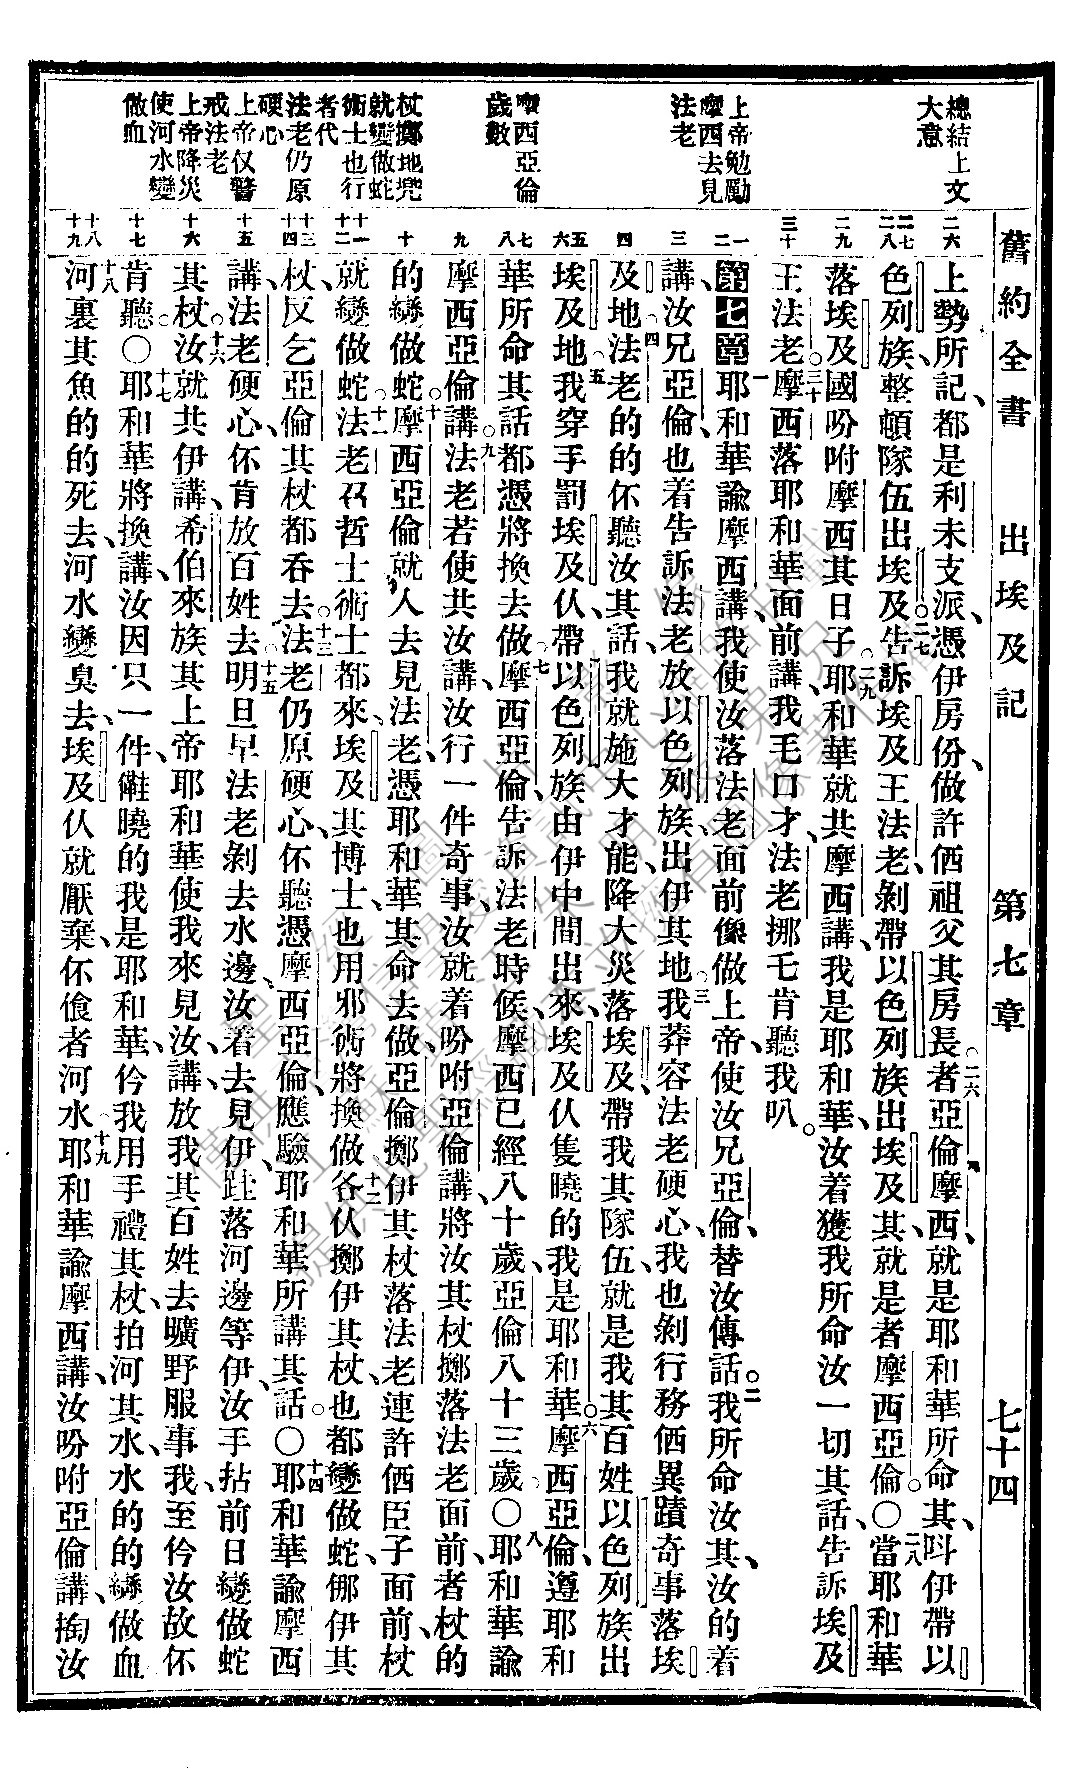 舊約全書 出埃及記 第七章 七十四
總結上文
大意
上帝勉勵
摩西去見
法老
摩西亞倫
歲數
杖擲地兜
就變做蛇
術士也行
者代
法老仍原
硬心
上帝仅警
戒法老
上帝降災
使河水變
做血
二六
二七 二八
二九
三十
一 二
三
四
五 六
七 八
九
十
十一 十二
十三 十四
十五
十六
十七
十八 十九
上勢所記、都是利未支派、憑伊房份、做許㑚祖父其房長。二六者亞倫摩西、就是耶和華所命其、呌伊帶以
色列族、整頓隊伍出埃及。二七告訴埃及王法老、剝帶以色列族出埃及其、就是者摩西亞倫。○二八當耶和華
落埃及國吩咐摩西其日子、二九耶和華就共摩西講、我是耶和華、汝着獲我所命汝一切其話、告訴埃及
王法老。三十摩西落耶和華面前講、我毛口才、法老挪乇肯聽我叭。
第七章 一耶和華諭摩西講、我使汝落法老面前像做上帝、使汝兄亞倫、替汝傳話。二我所命汝其、汝的着
講、汝兄亞倫、也着告訴法老放以色列族、出伊其地。三我莽容法老硬心、我也剝行務㑚異蹟奇事落埃
及地。四法老的的伓聽汝其話、我就施大才能、降大災落埃及、帶我其隊伍、就是我其百姓以色列族出
埃及地。五我穿手罰埃及仈、帶以色列族由伊中間出來、埃及仈隻曉的我是耶和華。六摩西亞倫、遵耶和
華所命其話、都憑將換去做。七摩西亞倫、告訴法老時候、摩西已經八十歲、亞倫八十三歲。○八耶和華諭
摩西亞倫講、九法老若使共汝講、汝行一件奇事、汝就着吩咐亞倫講、將汝其杖擲落法老面前、者杖的
的變做蛇。十摩西亞倫就入去見法老、憑耶和華其命去做、亞倫擲伊其杖落法老連許㑚臣子面前、杖
就變做蛇。十一法老召哲士術士都來、埃及其博士、也用邪術將換做。十二各仈擲伊其杖、也都變做蛇、㑚伊其
杖、反乞亞倫其杖都吞去。十三法老仍原硬心、伓聽憑摩西亞倫、應驗耶和華所講其話。○十四耶和華諭摩西
講、法老硬心、伓肯放百姓去。十五明旦早法老剝去水邊、汝着去見伊、跬落河邊等伊、汝手拈前日變做蛇
其杖。十六汝就共伊講、希伯來族其上帝耶和華、使我來見汝、講放我其百姓、去曠野服事我、至伶汝故伓
肯聽。○十七耶和華將換講、汝因只一件、儺曉的我是耶和華、伶我用手禮其杖、拍河其水、水的的變做血。
十八河裏其魚的的死去、河水變臭去、埃及仈就厭棄、伓飺者河水。十九耶和華諭摩西講、汝吩咐亞倫講、掏汝